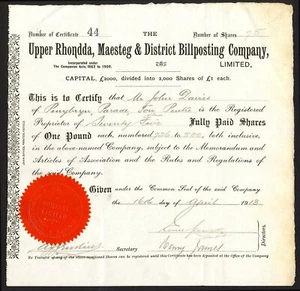 Number of Certificate 44 THE Number of Shares 75
Upper Rhondda, Maesteg & District Billposting Company,
Incorporated under
The Companies Acts, 1862 to 1900. LIMITED,
CAPITAL, £2000, divided into 2,000 Shares of £1 each.
This is to Certify that Mr John Davies
of Penybryn, Parade, Ton Pentre is the Registered
Proprietor of Seventy Five Fully Paid Shares
of One Pound each, numbered 726 to 800, both inclusive,
in the above-named Company, subject to the Memorandum and
Articles of Association and the Rules and Regulations of
the said Company.
Given under the Common Seal of the said Company
the 16th day of April 1913.
Secretary
Henry James
Directors.
No Transfer of any of the above-mentioned Shares can be registered until this Certificate has been deposited at the Office of the Company